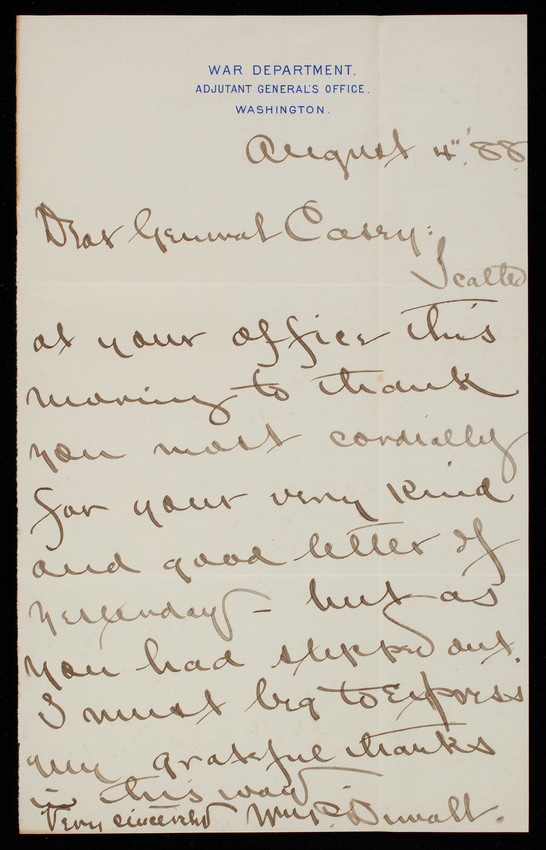 WAR DEPARTMENT.
ADJUTANT GENERAL'S OFFICE.
WASHINGTON.
August 4" '88
Dear General Casey:
I called
at your office this
morning to thank
you most cordially
for your very kind
and good letter of
yesterday – but as
you had stepped out.
I must beg to express
my grateful thanks
in this way
Very sincerely Wm P. Duvall.